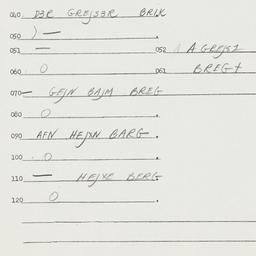 040 D3R GREJS3R BRIK
050 ) —
051 — 052 A GREJS1
060 O 061 BREG+
070 — GEJN BAJM BREG
080 O
090 AFN HEJXN BARG.
100 O
110 — HEJXE BERG
120 O